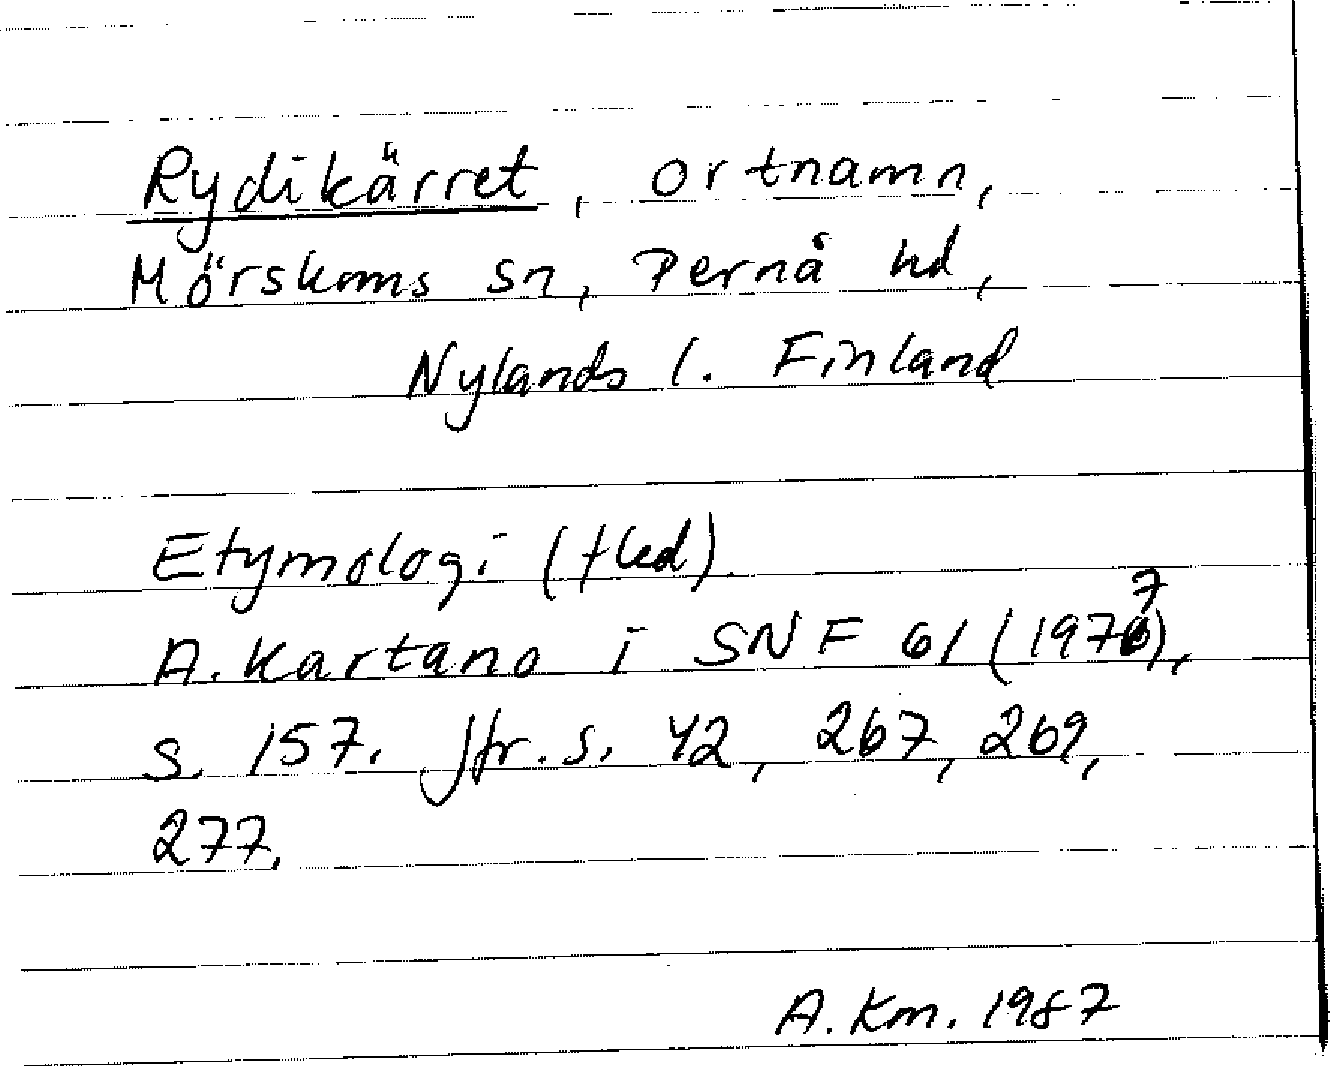 Rydikärret, ortnamn,
Mörskoms sn, Pernå hd,
Nylands l. Finland
Etymologi (fled).
A. Kartano i SNF 61 (1977),
s. 157. Jfr. s. 42, 267, 269,
277.
A. Km. 1987